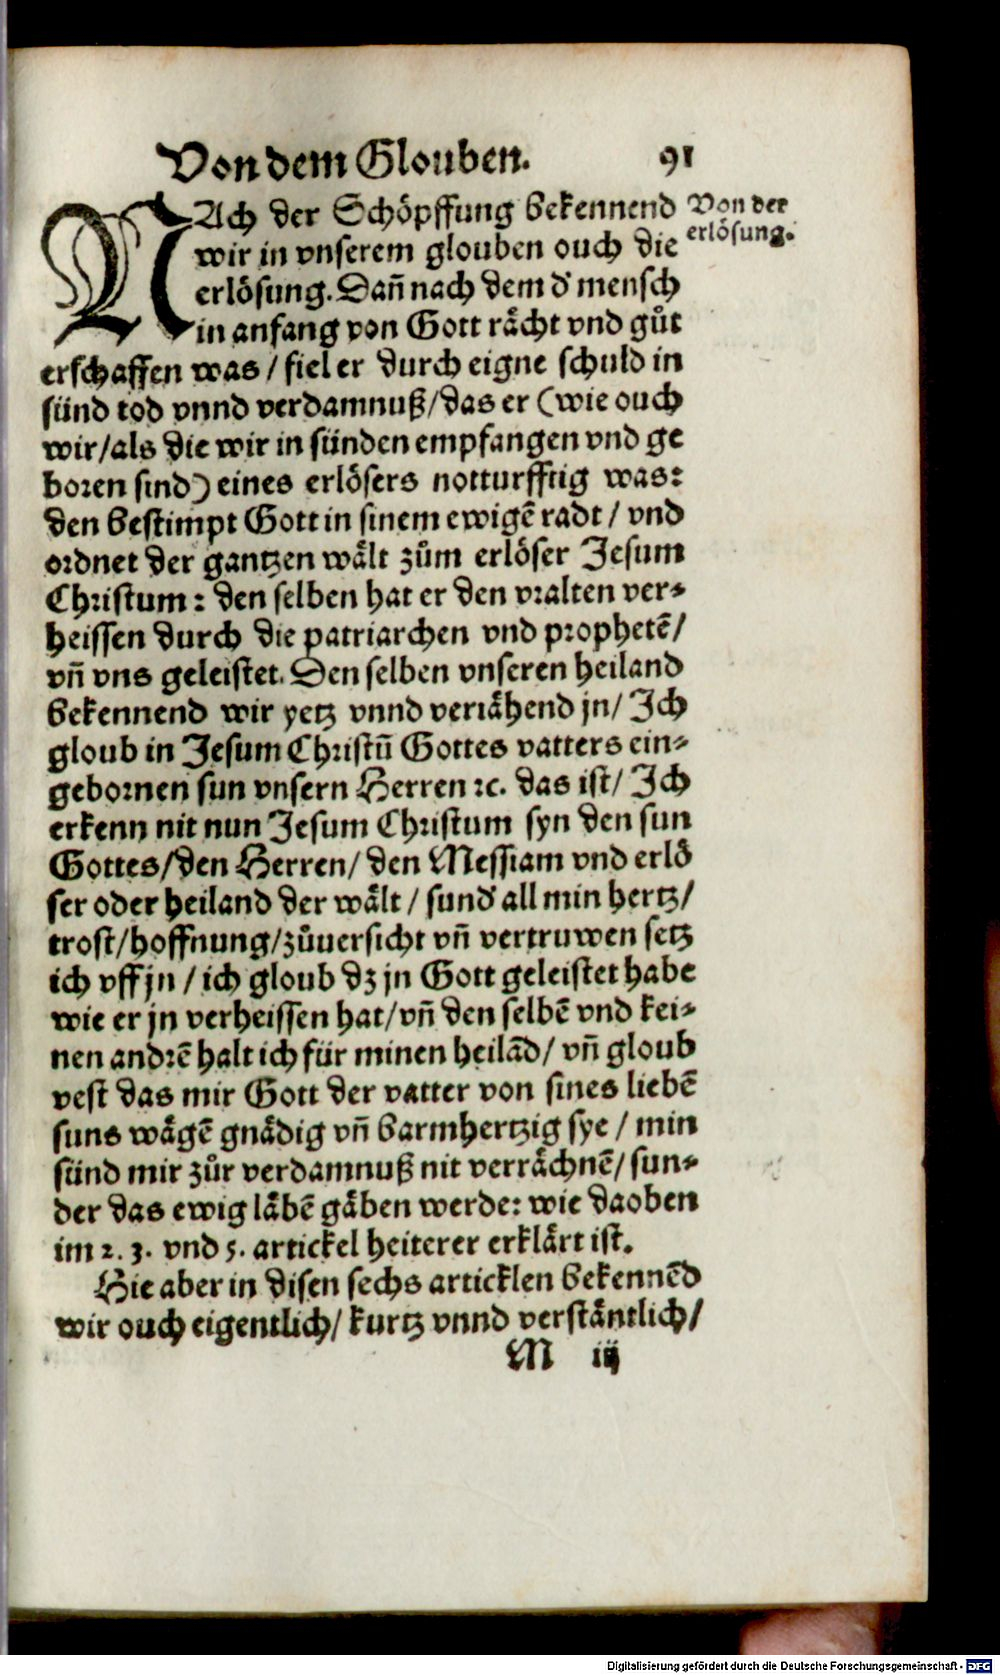 Von dem Glouben. 91
NAch der Schöpffung bekennend
Von der
wir in vnserem glouben ouch die
erlösung.
erlösung. Dañ nach dem d' mensch
in anfang von Gott rächt vnd gůt
erschaffen was / fiel er durch eigne schuld in
sünd tod vnnd verdamnuß/das er (wie ouch
wir/als die wir in sünden empfangen vnd ge
boren sind) eines erlösers notturfftig was:
den bestimpt Gott in sinem ewigē radt / vnd
ordnet der gantzen wält zům erlöser Jesum
Christum: den selben hat er den vralten ver⸗
heissen durch die patriarchen vnd prophetē/
vñ vns geleistet. Den selben vnseren heiland
bekennend wir yetz vnnd veriähend jn/ Ich
gloub in Jesum Christū Gottes vatters ein⸗
gebornen sun vnsern Herren ꝛc. das ist/ Ich
erkenn nit nun Jesum Christum syn den sun
Gottes/den Herren/ den Messiam vnd erlö
ser oder heiland der wält / sund' all min hertz/
trost/hoffnung/zůuersicht vñ vertruwen setz
ich vff jn / ich gloub dz jn Gott geleistet habe
wie er jn verheissen hat/vñ den selbē vnd kei⸗
nen andrē halt ich für minen heilād/ vñ gloub
vest das mir Gott der vatter von sines liebē
suns wägē gnädig vñ barmhertzig sye / min
sünd mir zůr verdamnuß nit verrächnē/ sun⸗
der das ewig läbē gäben werde: wie da oben
im 2. 3. vnd 5. artickel heiterer erklärt ist.
Hie aber in disen sechs articklen bekennēd
wir ouch eigentlich/ kurtz vnnd verstäntlich/
M iij
Digitalisierung gefördert durch die Deutsche Forschungsgemeinschaft - DFG